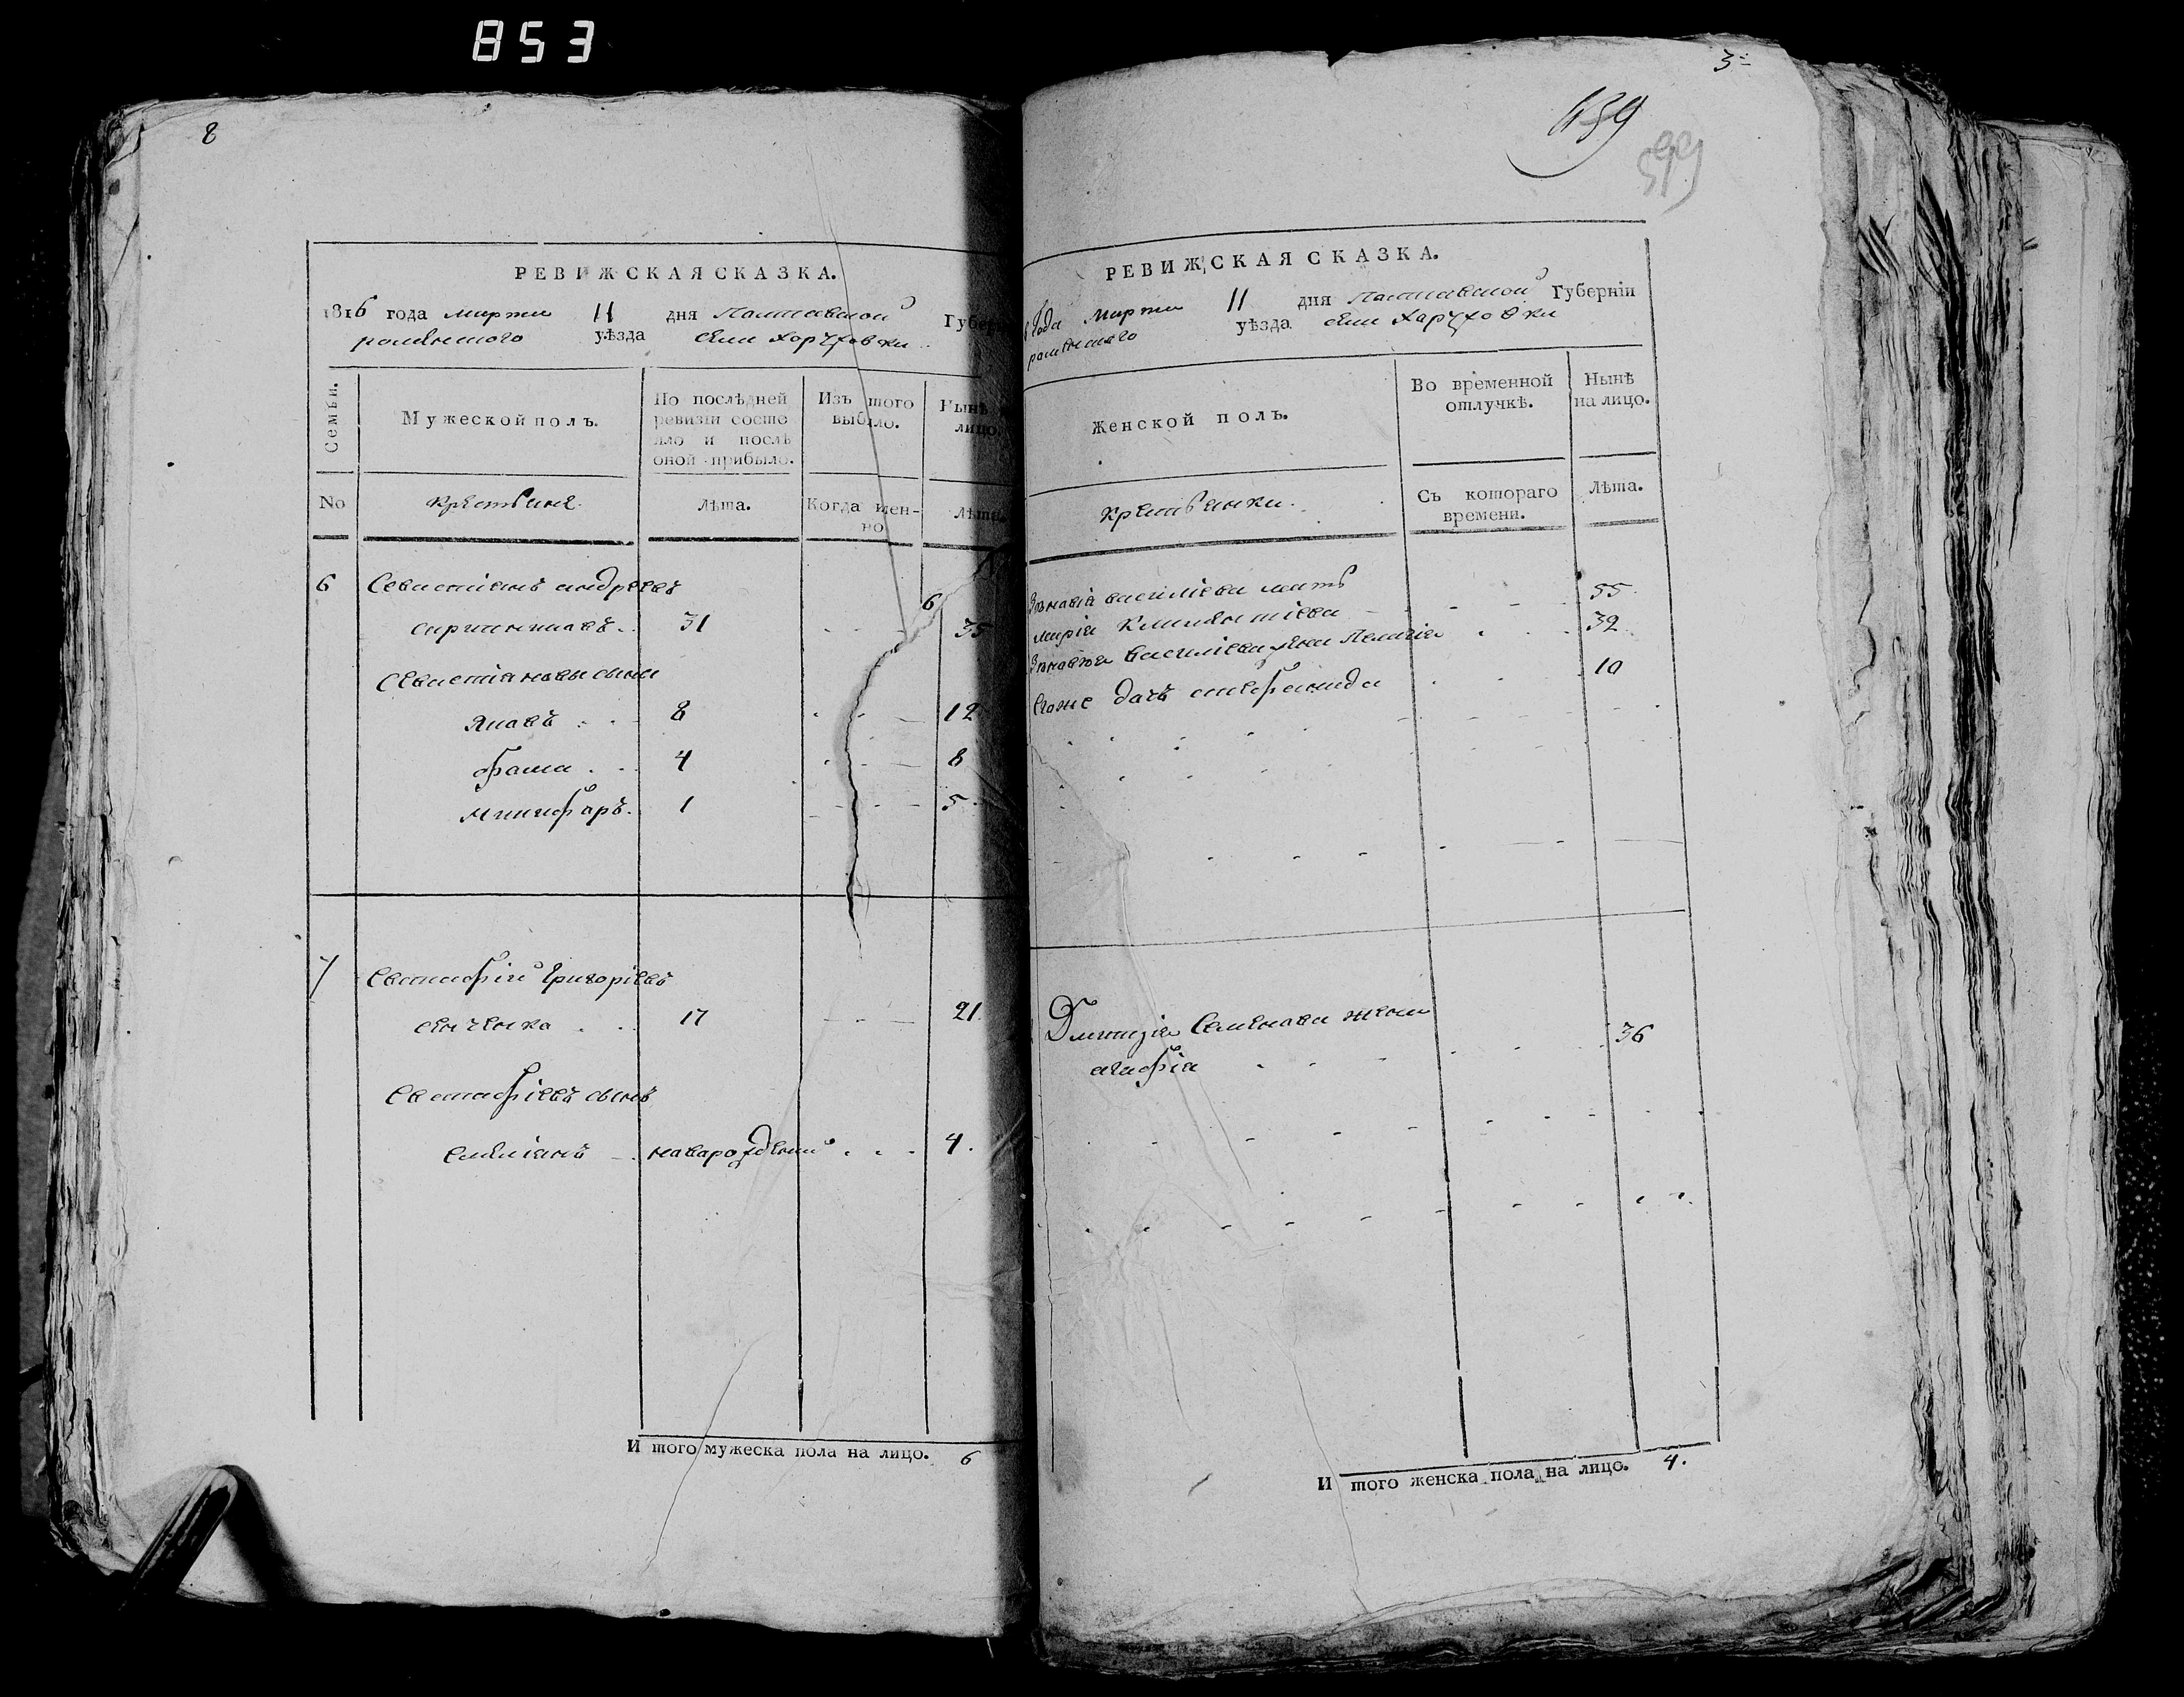 853
8
РЕВИЖСКАЯ СКАЗКА.
1816 года марта 11 дня Полтавской Губер
роменского уѣзда села Хоружовки
Семьи.
Мужеской полъ.
По послѣдней ревизіи состо
яло и послѣ
оной прибыло.
Изъ того
выбыло.
Нынѣ
лицо.
No
крестьяне.
Лѣта.
Когда имен-
но
Лѣта.
6 Севастіянъ андреевъ
31 35
Севастіяновы сыны
Яковъ 8 12
фома 4 8
Никифоръ. 1 5
7 Евстафій Григоріевъ
сенченко 17 21
Евстафіевъ сынъ
Емеліанъ новорожденный 4.
И того мужеска пола на лицо. 6
3
599
РЕВИЖСКАЯ СКАЗКА.
года марта 11 дня Полтавской Губерніи
роменского уѣзда села Хоружовки
Женской полъ.
Во временной
отлучкѣ.
Нынѣ
на лицо.
крестьянки.
Съ котораго
времени.
Лѣта.
василіева мать 55
марія 32
василіева Пелагія
дочь степанида 10
Семенова жена
агафія 36
И того женска пола на лицо. 4.